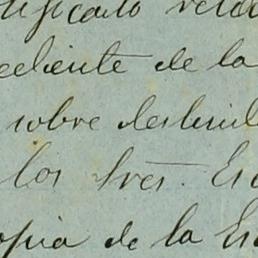 tificado rela
ediente de la
sobre deslind
los Sres. Es
opia de la Es